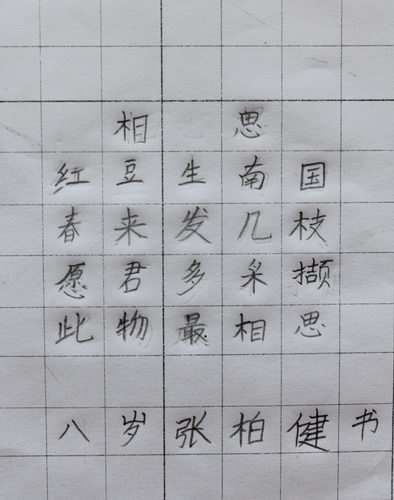 相思
红豆生南国
春来发几枝
愿君多采撷
此物最相思
八岁张柏健书